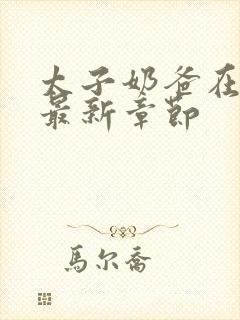 太子奶爸在
最新章節
馬尔喬